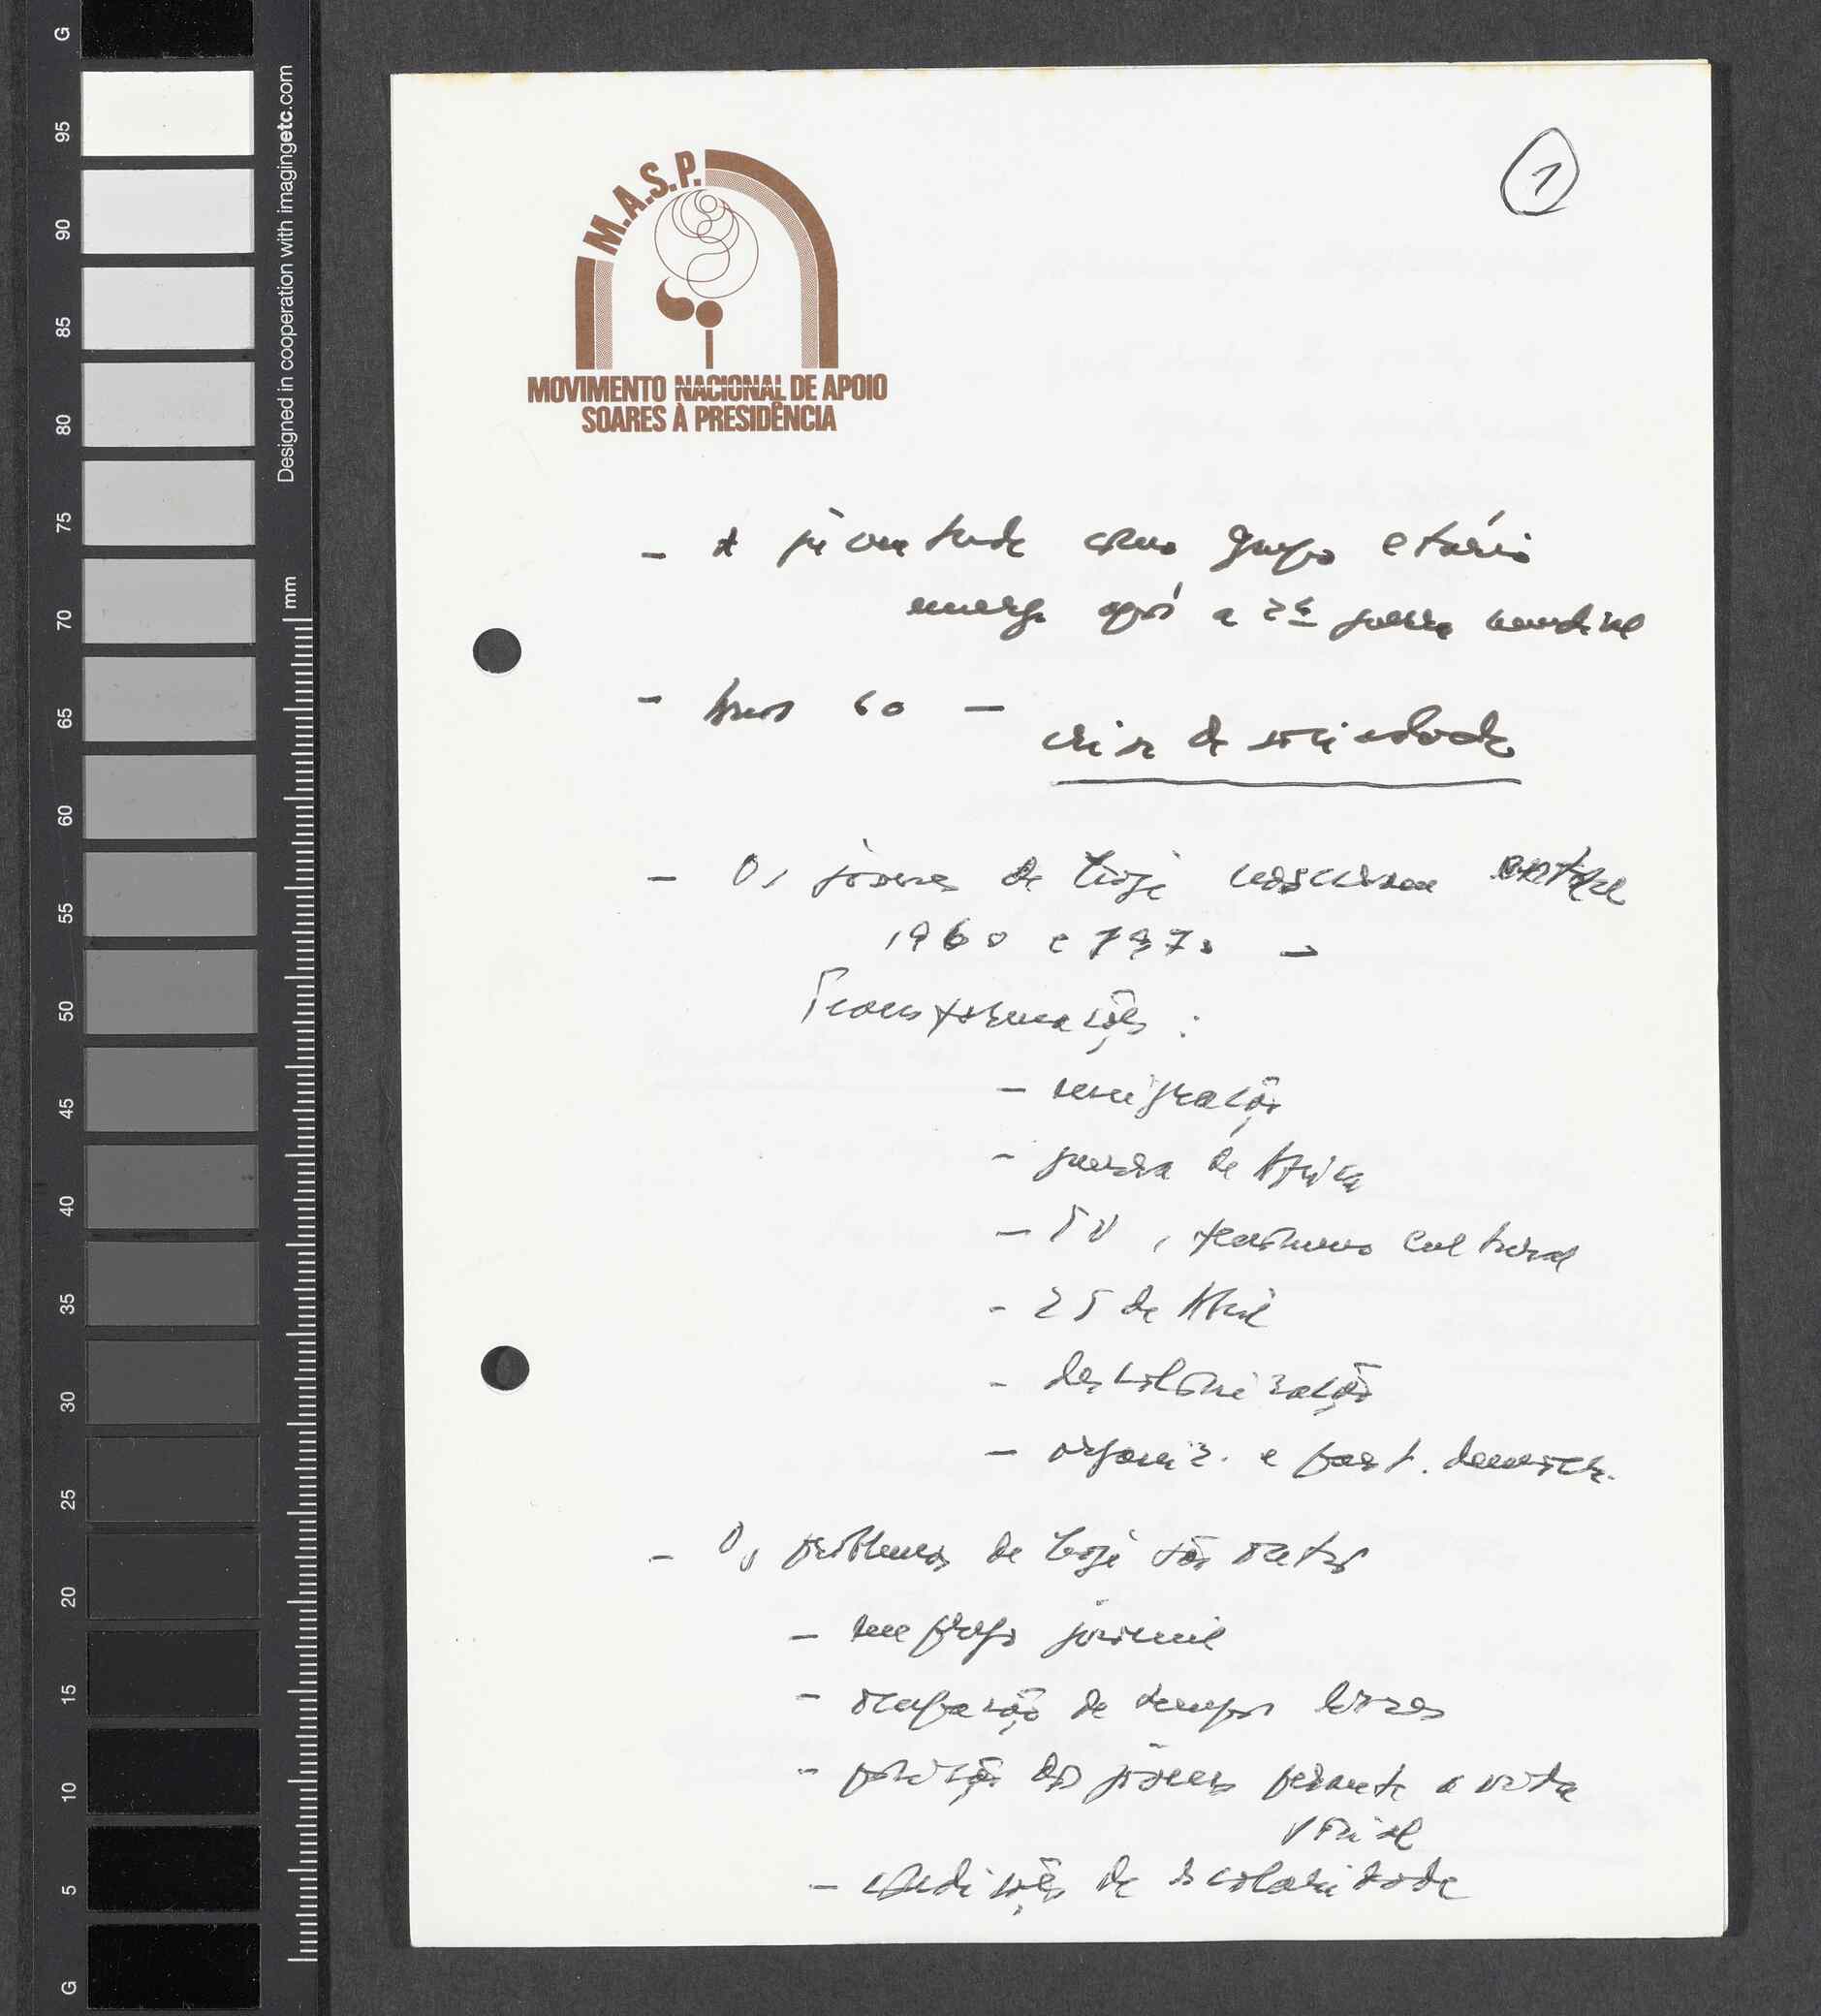 G
95
90
85
80
75
70
65
60
55
50
45
40
35
30
25
20
15
10
5
G
Designed in cooperation with imagingetc.com
mm
1
M.A.S.P.
MOVIMENTO NACIONAL DE APOIO
SOARES À PRESIDÊNCIA
- A juventude como grupo etário
emerge após a 2ª guerra mundial
- Anos 60 -
crise de sociedade
- Os jovens de hoje nasceram entre
1960 e 1970 -
Transformações :
- emigração
- guerra de África
- TV, turismo cultural
- 25 de Abril
- descolonização
- organiz. e part. democr.
- Os problemas de hoje são outros
- emprego juvenil
- ocupação de tempos livres
- posição dos jovens perante a vida
social
- condições de escolaridade